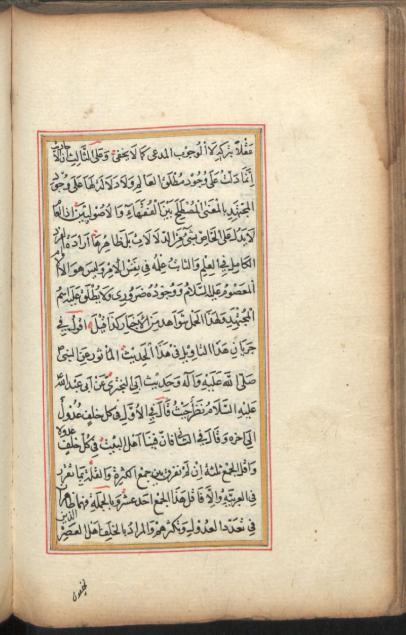 عقلا بتركيه لا الوجوب المدعى كما لا يخفى وعلى الثالث ان الاخبار
انما دلت على وجود مطلق العالم ولا دلالة لها على وجود
المجتهد بالمعنى المصطلح بين الفقهاء والاصوليين اذ العام
لا يدل على الخاص بشيء من الدلالات بل ظاهرها ارادة الفرد
الكامل في العلم والثابت علمه في نفس الامر وليس هو الا الامام
المعصوم عليه السلام ووجوده ضروري ولا يطلق عليه اسم
المجتهد ولهذا الحمل شواهد من الاخبار كذا قيل اقول في
جريان هذا التاويل في هذا الحديث الماثور عن النبي
صلى الله عليه وآله وحديث ابي البختري عن ابي عبد الله
عليه السلام نظر حيث قال في الاول في كل خلف عدول
الى آخره وقال في الثاني فان فينا اهل البيت في كل خلف عدولا
واقل الجمع ثلثة ان لم نفرق بين جمع الكثرة والقلة كما تقرر
في العربية والا فاقل هذا الجمع احد عشر وبالجملة فهما ظاهران
في تعدد العدول وتكثرهم والمراد بالخلف اهل العصر الذين
يخلفون